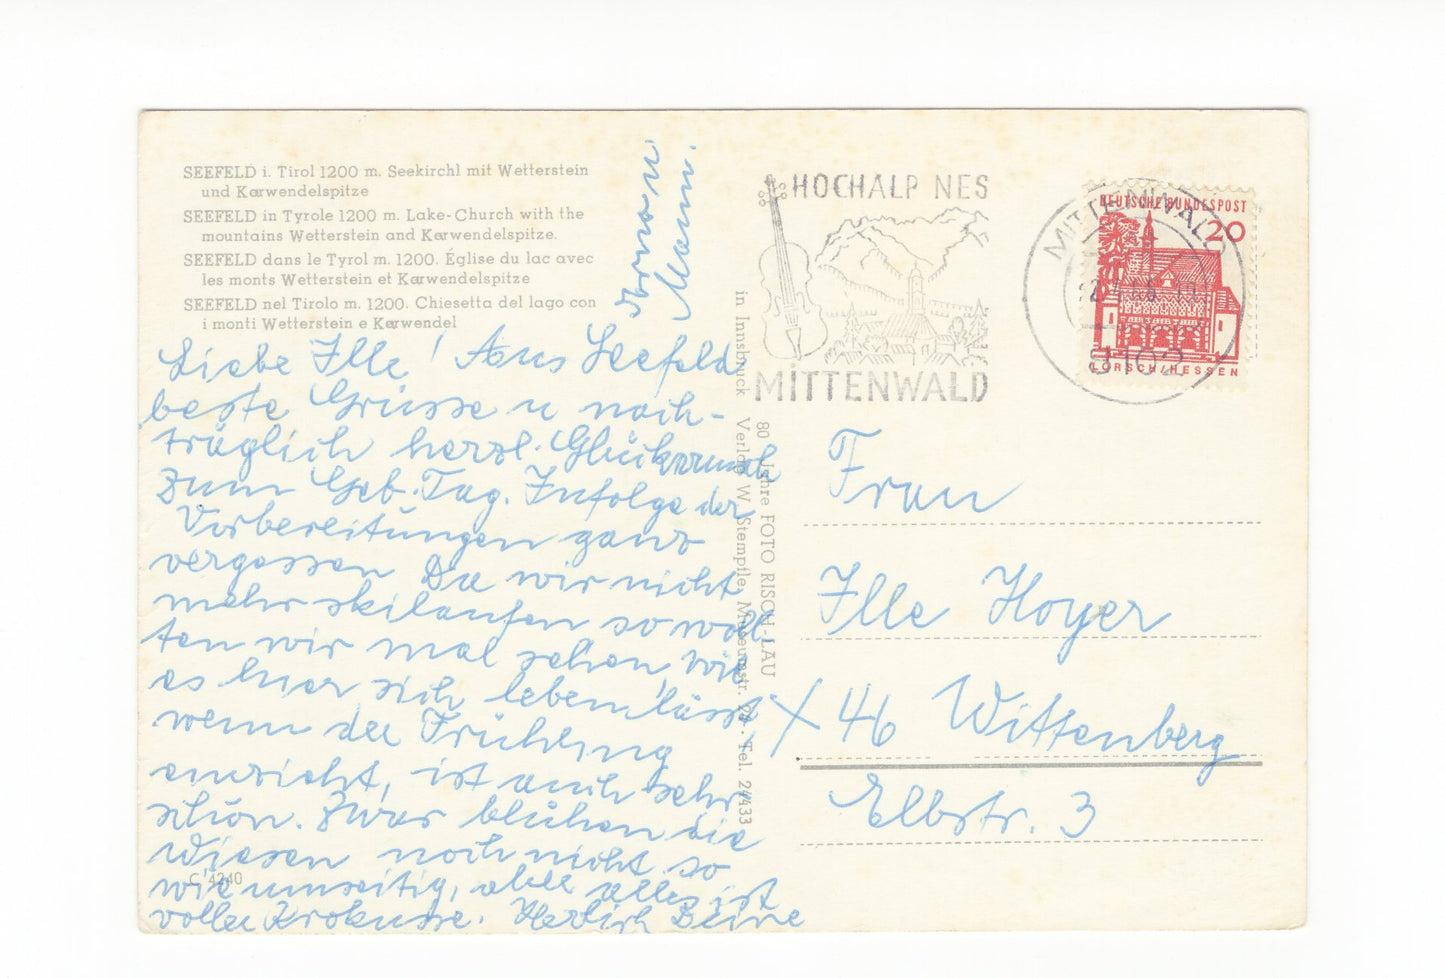 SEEFELD i. Tirol 1200 m. Seekirchl mit Wetterstein
und Karwendelspitze
SEEFELD in Tyrole 1200 m. Lake-Church with the
mountains Wetterstein and Karwendelspitze.
SEEFELD dans le Tyrol m. 1200. Église du lac avec
les monts Wetterstein et Karwendelspitze
SEEFELD nel Tirolo m. 1200. Chiesetta del lago con
i monti Wetterstein e Karwendel
Liebe Ille! Aus Seefeld
beste Grüsse u nach-
träglich herzl. Glückwunsch
zum Geb. Tag. Infolge der
Vorbereitungen ganz
vergessen Da wir nicht
mehr skilaufen so woll
ten wir mal sehen, wie
es hier sich leben lässt,
wenn der Frühling
einzieht, ist auch sehr
schön. Zwar blühen die
Wiesen noch nicht so
wie umseitig, aber alles ist
voller Krokusse. Herzlich Deine
u
Mann.
C 4240
80 Jahre FOTO RISCH-LAU
in Innsbruck Verlag W. Stempfle, Museumstr. 24 - Tel. 24433
HOCHALP NES
MiTTENWALD
MITTENWALD
8102
DEUTSCHE BUNDESPOST
20
LORSCH/HESSEN
Frau
Ille Hoyer
X 46 Wittenberg
Elbstr. 3